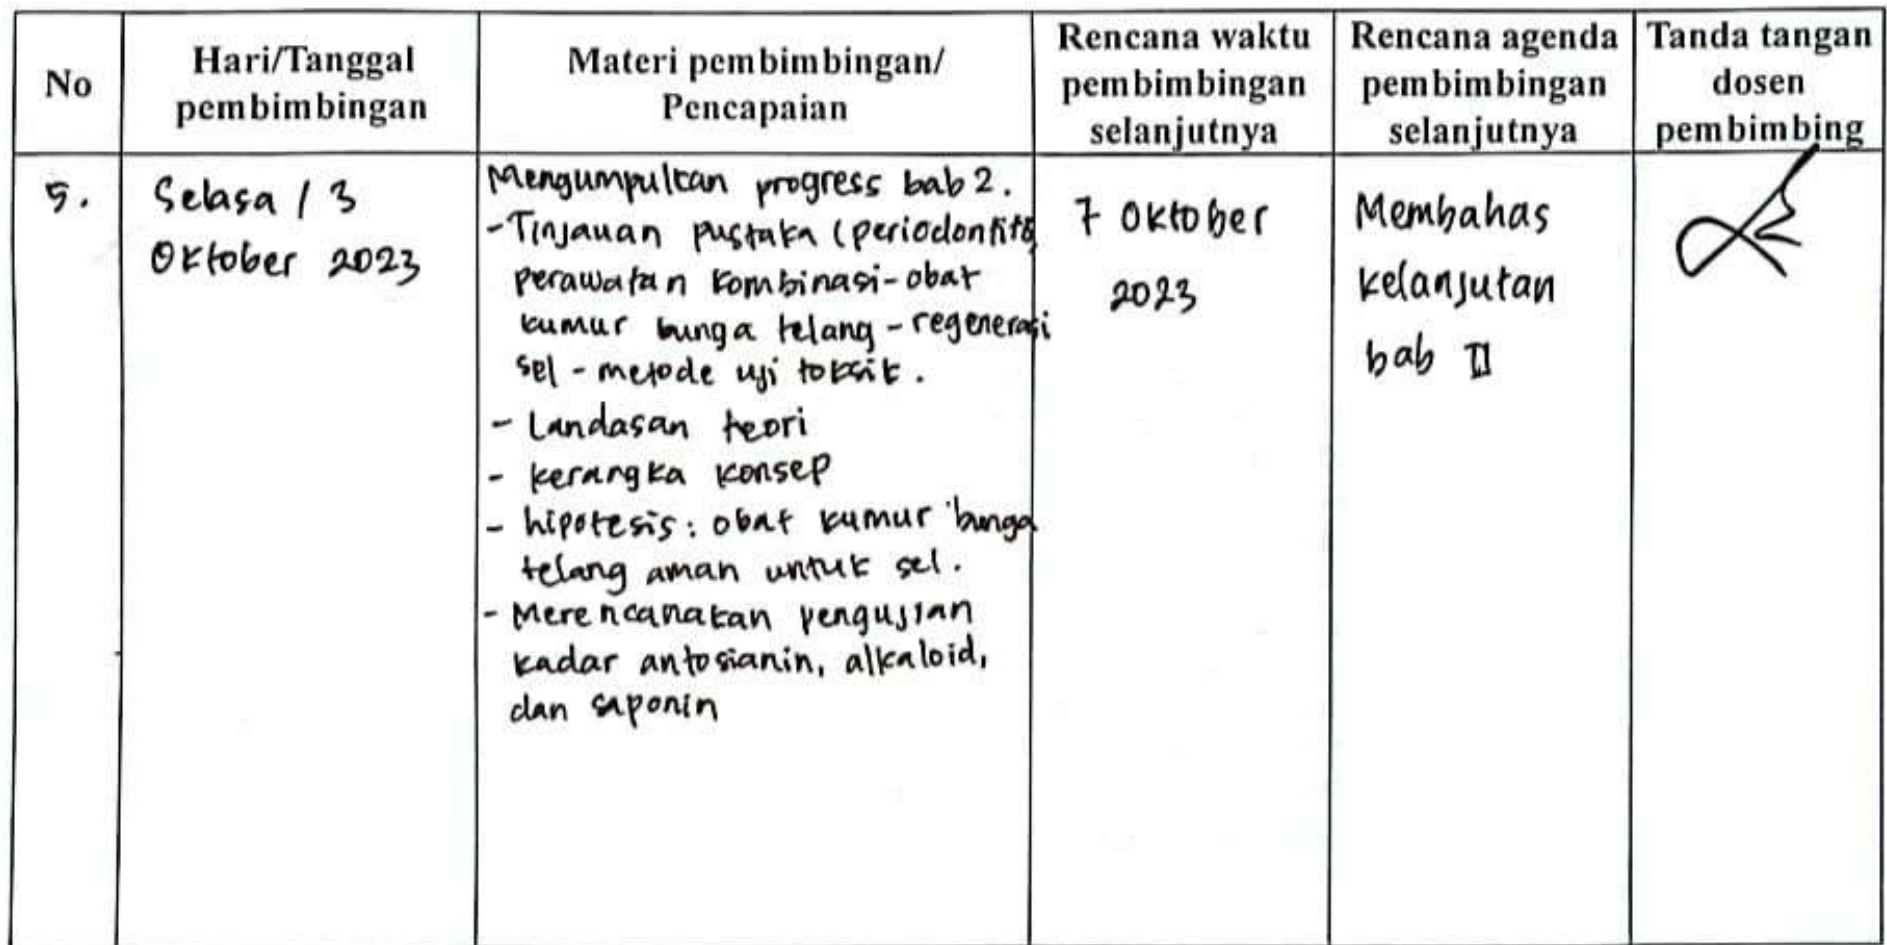 No
Hari/Tanggal
pembimbingan
Materi pembimbingan/
Pencapaian
Rencana waktu
pembimbingan
selanjutnya
Rencana agenda
pembimbingan
selanjutnya
Tanda tangan
dosen
pembimbing
5.
Selasa / 3
Oktober 2023
Mengumpulkan progress bab 2.
- Tinjauan pustaka (periodontitis
perawatan kombinasi - obat
kumur bunga telang - regenerasi
sel - metode uji toksik.
- Landasan teori
- kerangka konsep
- hipotesis : obat kumur bunga
telang aman untuk sel.
- Merencanakan pengujian
kadar antosianin, alkaloid,
dan saponin
7 Oktober
2023
Membahas
kelanjutan
bab II